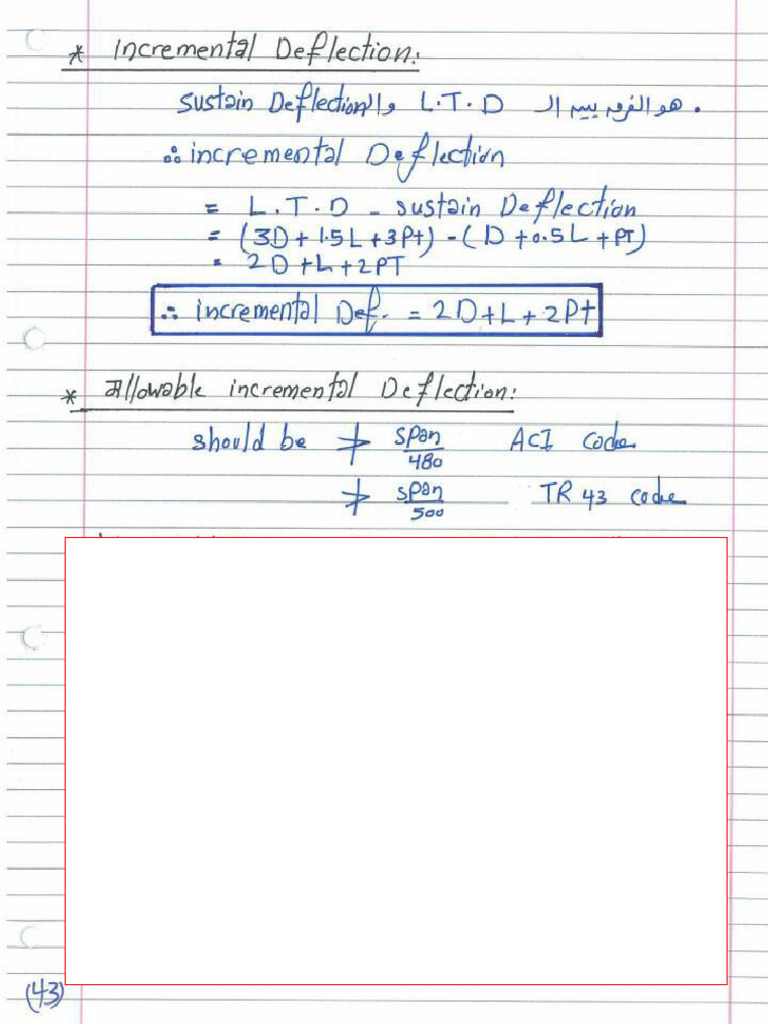 * Incremental Deflection:
. هو الفرق بين ال L.T.D وال sustain Deflection
∴ incremental Deflection
= L.T.D - sustain Deflection
= (3D + 1.5L + 3Pt) - (D + 0.5L + PT)
= 2D + L + 2PT
∴ incremental Def. = 2D + L + 2Pt
* allowable incremental Deflection:
should be ≯ span/480 ACI code
≯ span/500 TR 43 code
(43)